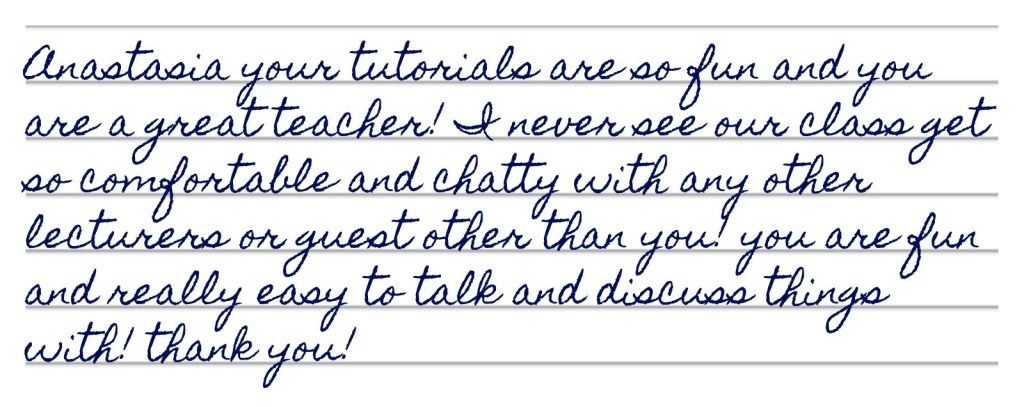 Anastasia your tutorials are so fun and you
are a great teacher! I never see our class get
so comfortable and chatty with any other
lecturers or guest other than you! you are fun
and really easy to talk and discuss things
with! thank you!